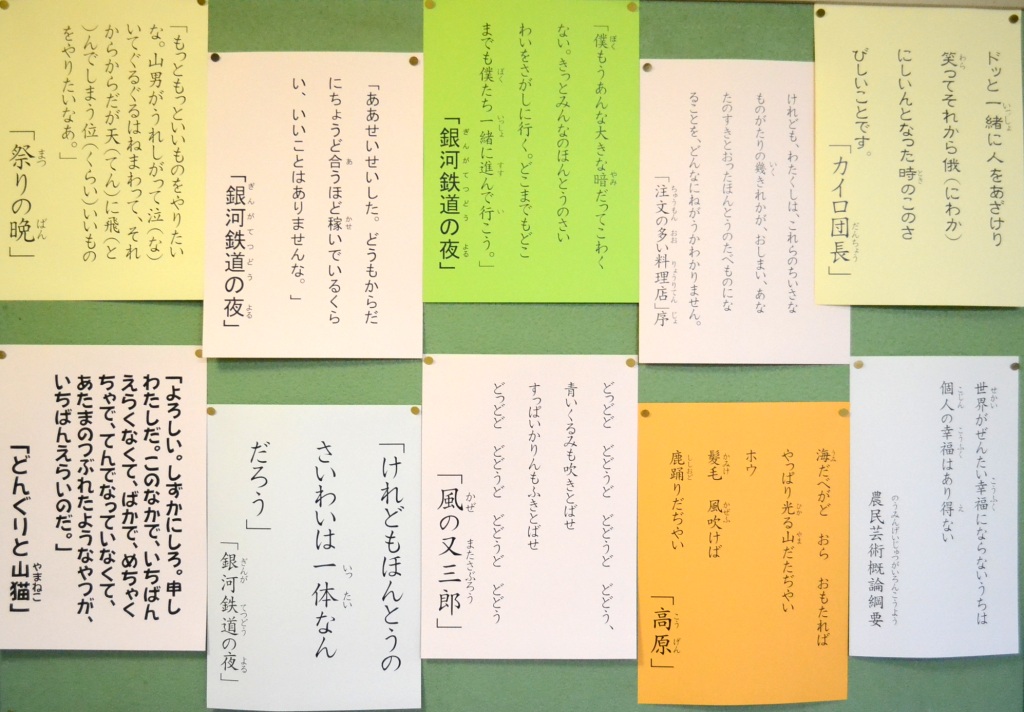 ドッと一緒に人をあざけり
笑ってそれから俄（にわか）
にしいんとなった時のこのさ
びしいことです。
「カイロ団長」
けれども、わたくしは、これらのちいさな
ものがたりの幾きれかが、おしまい、あな
たのすきとおったほんとうのたべものにな
ることを、どんなにねがうかわかりません。
「注文の多い料理店」序
「僕もうあんな大きな暗だってこわく
ない。きっとみんなのほんとうのさい
わいをさがしに行く。どこまでもどこ
までも僕たち一緒に進んで行こう。」
「銀河鉄道の夜」
「ああせいせいした。どうもからだ
にちょうど合うほど稼いでいるくら
い、いいことはありませんな。」
「銀河鉄道の夜」
「もっともっといいものをやりたい
な。山男がうれしがって泣（な）
いてぐるぐるはねまわって、それ
からからだが天（てん）に飛（と
）んでしまう位（くらい）いいもの
をやりたいなあ。」
「祭りの晩」
世界がぜんたい幸福にならないうちは
個人の幸福はあり得ない
農民芸術概論綱要
海だべがど　おら　おもたれば
やっぱり光る山だたぢやい
ホウ
髪毛　風吹けば
鹿踊りだぢやい
「高原」
どっどど　どどうど　どどうど　どどう、
青いくるみも吹きとばせ
すっぱいかりんもふきとばせ
どっどど　どどうど　どどうど　どどう
「風の又三郎」
「けれどもほんとうの
さいわいは一体なん
だろう」
「銀河鉄道の夜」
「よろしい。しずかにしろ。申し
わたしだ。このなかで、いちばん
えらくなくて、ばかで、めちゃく
ちゃで、てんでなっていなくて、
あたまのつぶれたようなやつが、
いちばんえらいのだ。」
「どんぐりと山猫」